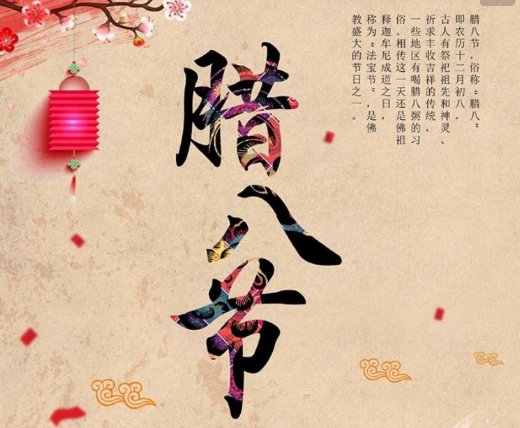 腊八节
腊八节，俗称“腊八”
即农历十二月初八，
古人有祭祀祖先和神灵、
祈求丰收吉祥的传统，
一些地区有喝腊八粥的习
俗。相传这一天还是佛祖
释迦牟尼成道之日，
称为“法宝节”，是佛
教盛大的节日之一。